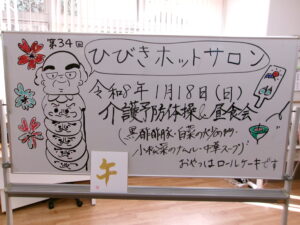 第34回
ひびきホットサロン
令和8年1月18日(日)
介護予防体操&昼食会
(黒酢酢豚・白菜の
小松菜のナムル・中華スープ)
おやつはロールケーキです
午